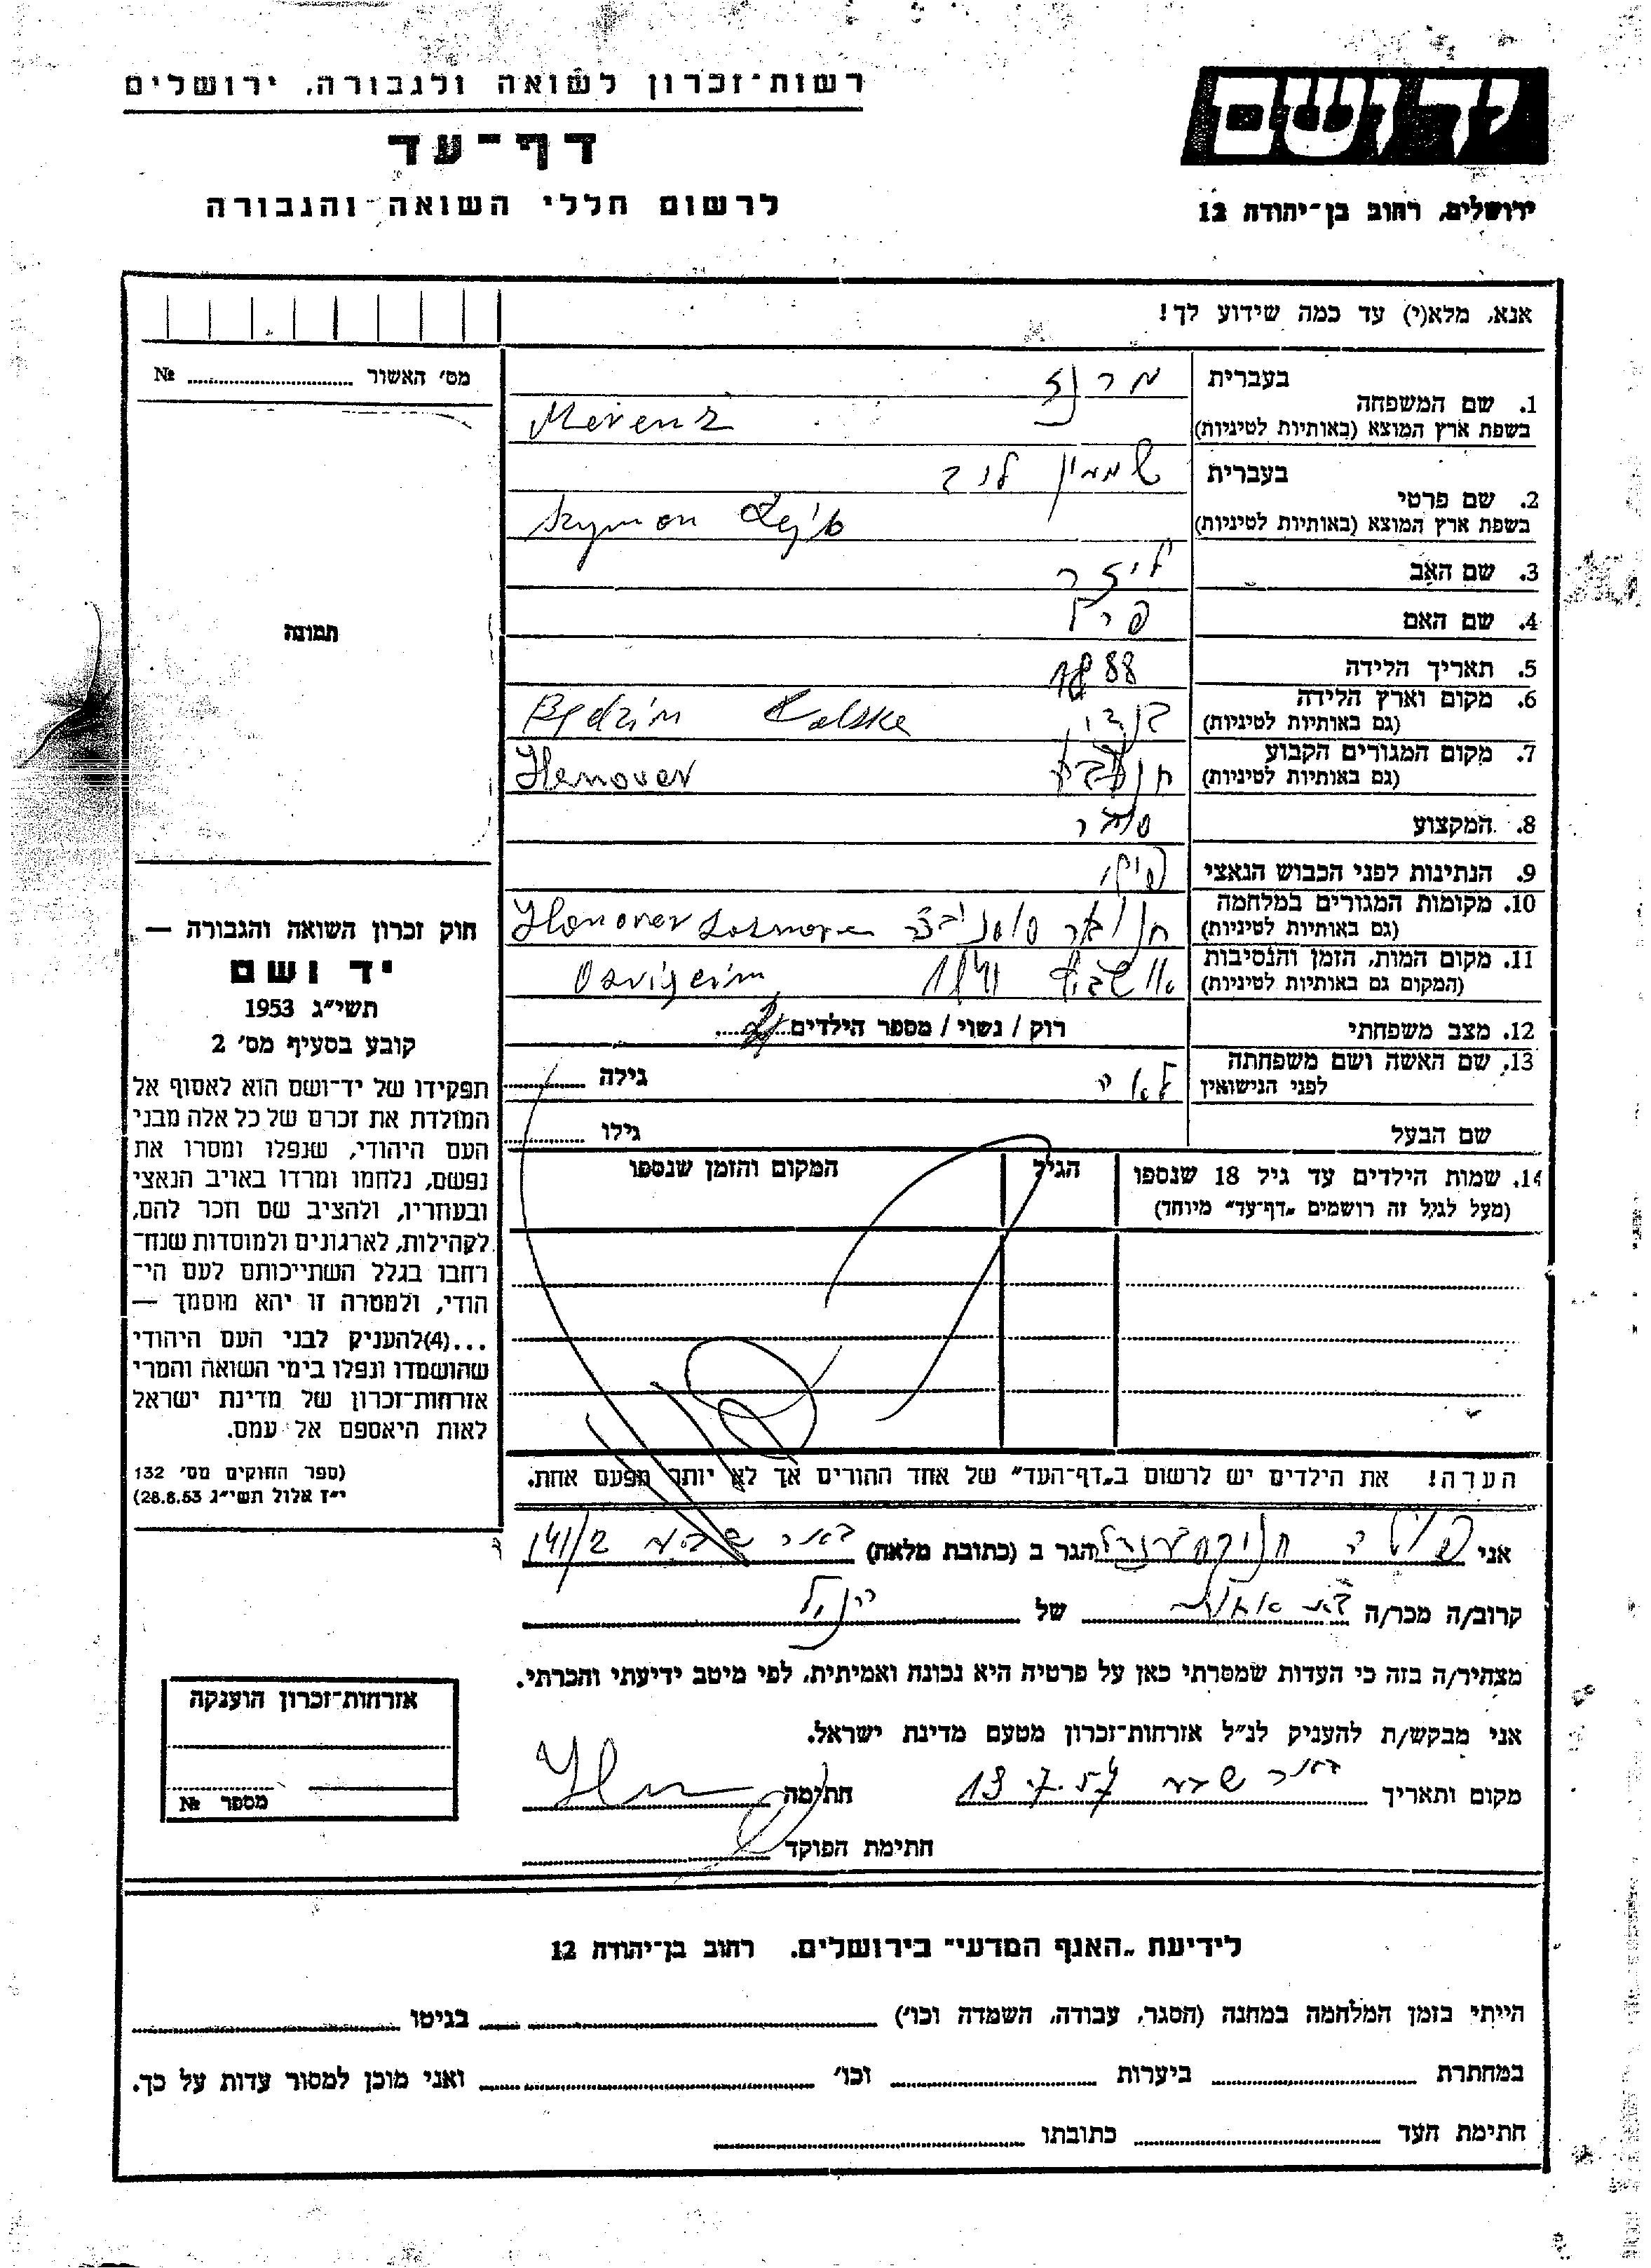 רשות־זכרון לשואה ולגבורה, ירושלים
דף־עד
לרשום חללי השואה והגבורה
יד ושם
ירושלים, רחוב בן־יהודה 12
אנא, מלא(י) עד כמה שידוע לך!
מס׳ האשור № ........
בעברית
מרנז
1. שם המשפחה
בשפת ארץ המוצא (באותיות לטיניות)
Merenz
בעברית
2. שם פרטי
בשפת ארץ המוצא (באותיות לטיניות)
Szymon
3. שם האב
ליזר
4. שם האם
פרל
5. תאריך הלידה
1888
6. מקום וארץ הלידה
(גם באותיות לטיניות)
Będzin Polska
7. מקום המגורים הקבוע
(גם באותיות לטיניות)
Hanover
8. המקצוע
סוחר
9. הנתינות לפני הכבוש הנאצי
10. מקומות המגורים במלחמה
(גם באותיות לטיניות)
Hanover
11. מקום המות, הזמן והנסיבות
(המקום גם באותיות לטיניות)
12. מצב משפחתי
רוק / נשוי / מספר הילדים
13. שם האשה ושם משפחתה
לפני הנישואין
גילה
שם הבעל
גילו
14. שמות הילדים עד גיל 18 שנספו
(מעל לגיל זה רושמים „דף־עד״ מיוחד)
הגיל
המקום והזמן שנספו
תמונה
חוק זכרון השואה והגבורה —
יד ושם
תשי״ג 1953
קובע בסעיף מס׳ 2
תפקידו של יד־ושם הוא לאסוף אל
המולדת את זכרם של כל אלה מבני
העם היהודי, שנפלו ומסרו את
נפשם, נלחמו ומרדו באויב הנאצי
ובעוזריו, ולהציב שם וזכר להם,
לקהילות, לארגונים ולמוסדות שנח־
רחבו בגלל השתייכותם לעם הי־
הודי, ולמטרה זו יהא מוסמך —
...(4)להעניק לבני העם היהודי
שהושמדו ונפלו בימי השואה והמרי
אזרחות־זכרון של מדינת ישראל
לאות היאספם אל עמם.
(ספר החוקים מס׳ 132
י״ז אלול תשי״ג 28.8.53)
הערה! את הילדים יש לרשום ב„דף־העד״ של אחד ההורים אך לא יותר מפעם אחת.
אני
הגר ב (כתובת מלאה) באר שבע
קרוב/ה מכר/ה
של
מצהיר/ה בזה כי העדות שמסרתי כאן על פרטיה היא נכונה ואמיתית, לפי מיטב ידיעתי והכרתי.
אני מבקש/ת להעניק לנ״ל אזרחות־זכרון מטעם מדינת ישראל.
מקום ותאריך באר שבע 13.7.57
חתימה
חתימת הפוקד
אזרחות־זכרון הוענקה
מספר №
לידיעת „האגף המדעי״ בירושלים, רחוב בן־יהודה 12
הייתי בזמן המלחמה במחנה (הסגר, עבודה, השמדה וכו׳) ........ בגיטו ........
במחתרת ........ ביערות ........ וכו׳ ........ ואני מוכן למסור עדות על כך.
חתימת העד ........ כתובתו ........